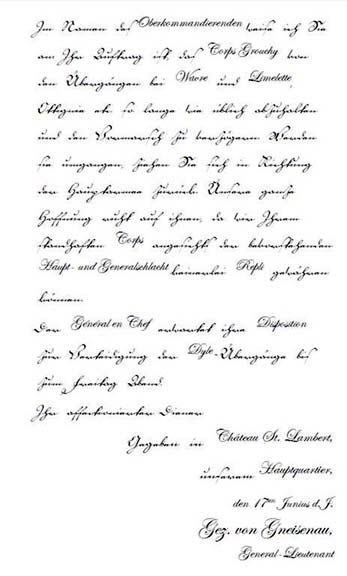 Im Namen des Oberkommandierenden weise ich Sie
an Ihr Auftrag ist, das Corps Grouchy von
den Übergängen bei Wavre und Limelette,
Ottignie etc so lange wie üblich abzuhalten
und den Vormarsch zu verzögern. Werden
sie umgangen, ziehen Sie sich in Richtung
der Hauptarmee zurück. Unsere ganze
Hoffnung ruht auf ihnen, da wir Ihrem
standhaften Corps angesichts der bevorstehenden
Haupt- und Generalschlacht keinerlei Repli gewähren
können.
Der Général en Chef erwartet ihre Disposition
zur Verteidigung der Dyle-Übergänge bis
zum Freitag Abend.
Ihr affectionierter Diener
Gegeben in Château St. Lambert,
unserem Hauptquartier,
den 17ten Junius d. J.
Gez. von Gneisenau,
General-Lieutenant